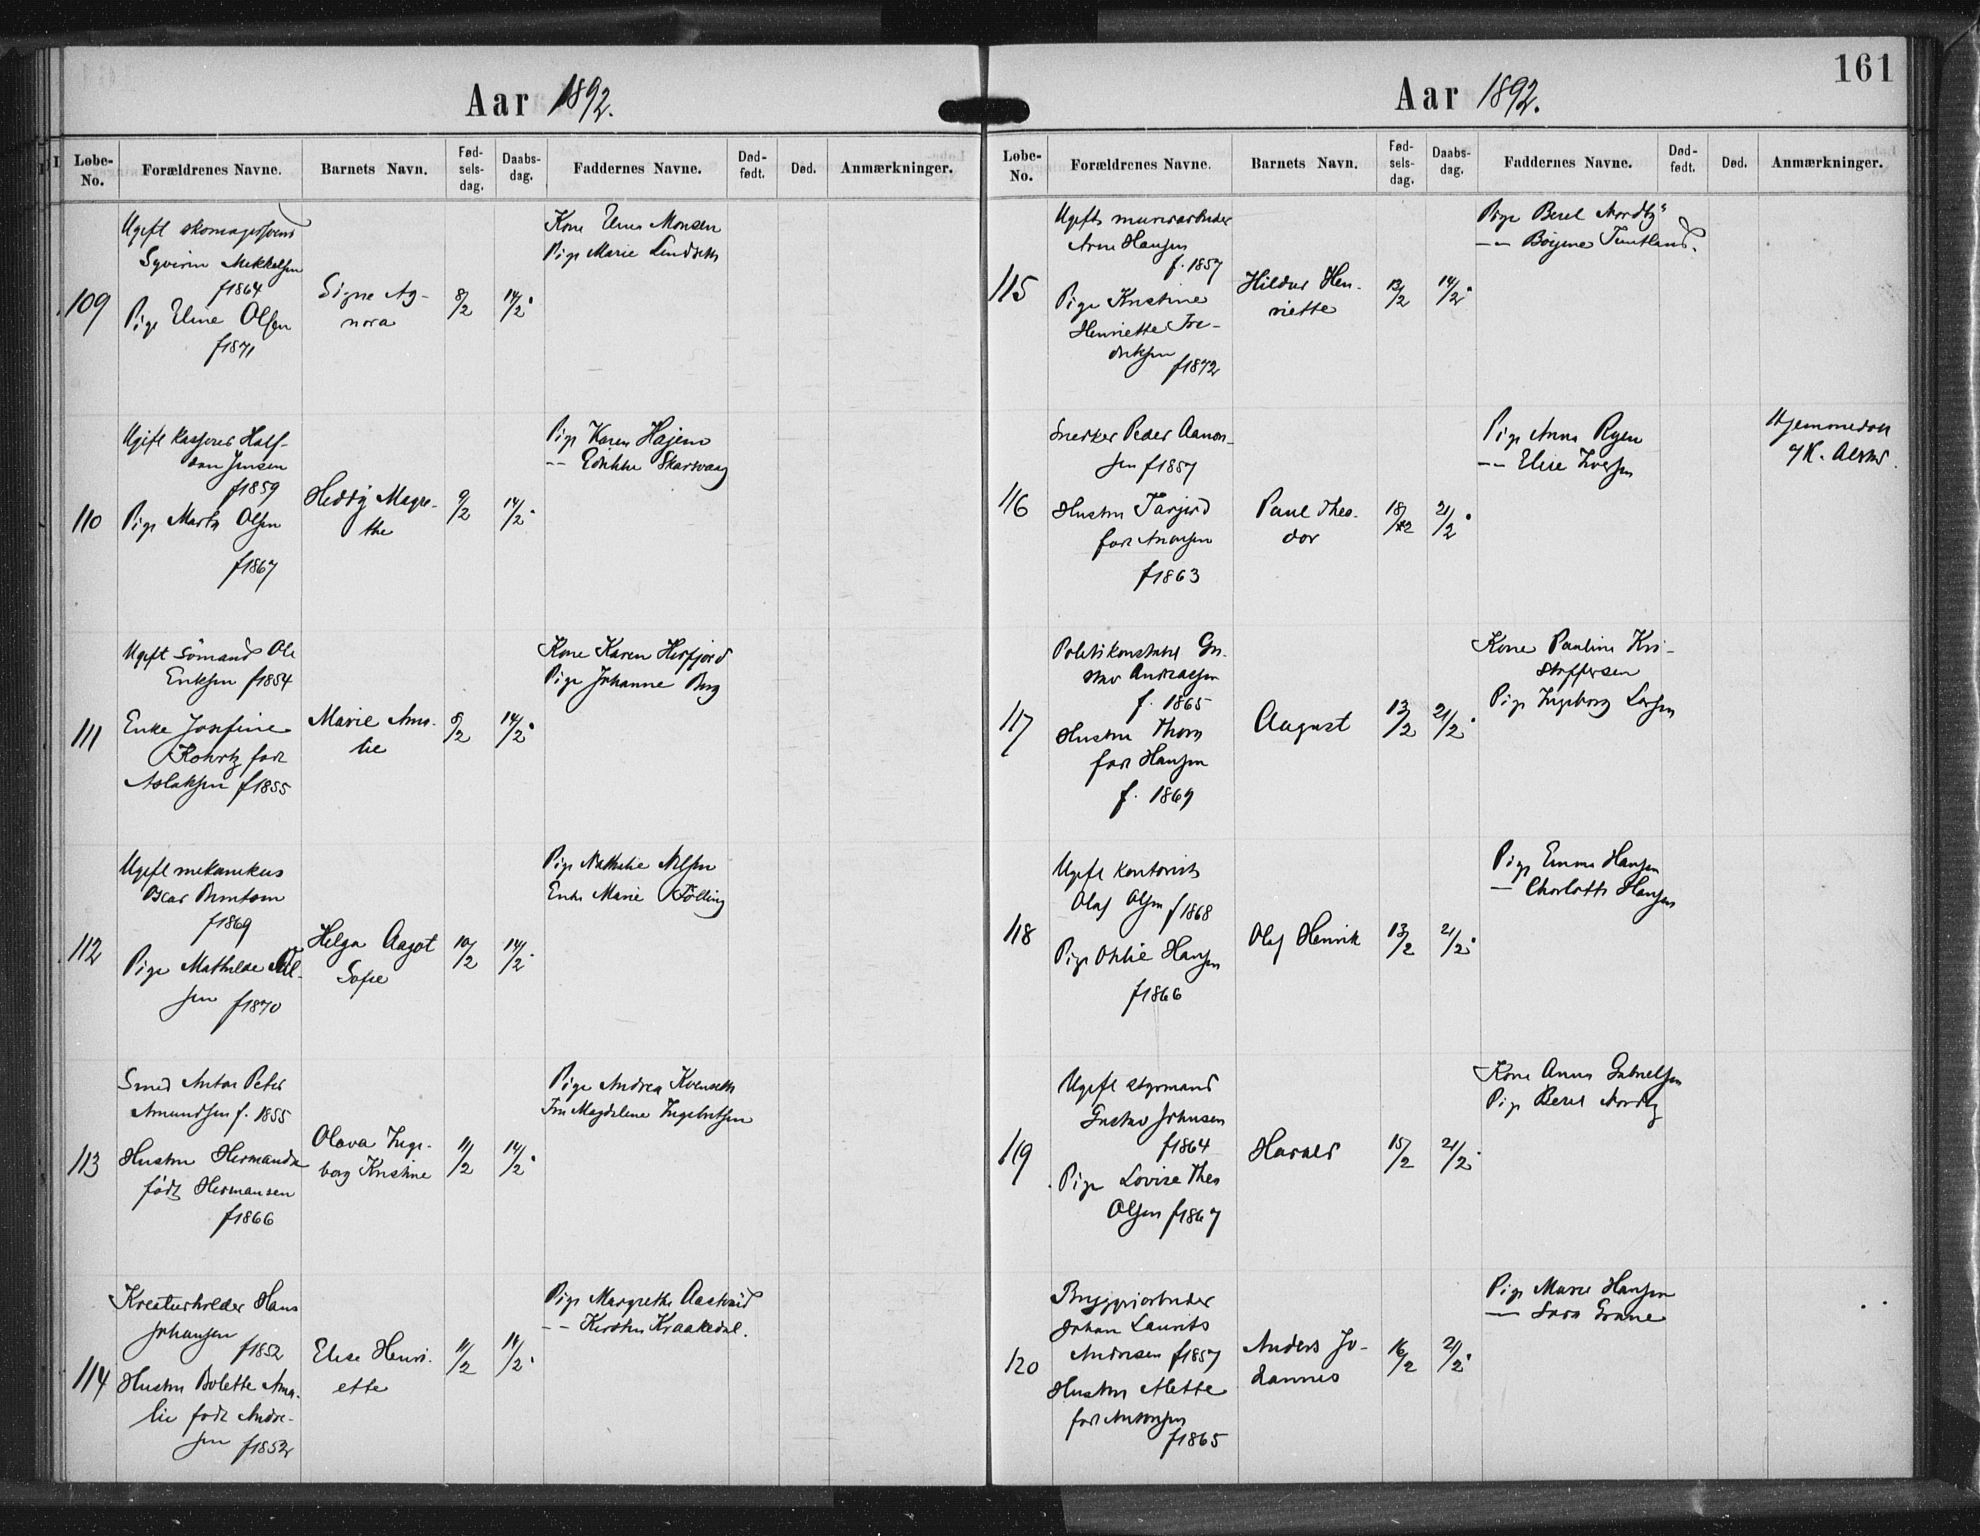 Aar 1892.
Løbe-No. Forældrenes Navne. Barnets Navn. Fød-sels-dag. Daabs-dag. Faddernes Navne. Død-født. Død. Anmærkninger.
109
Ugift skomagersvend
Syverin Mikkelsen
f1864
Pige Eline Olsen
f1871
Signe Ag-
nora
8/2
14/2.
Kone
Monsen
Pige Marie Lindseth
110
Ugift kasserer Half-
dan Jensen
f1859
Pige Marta Olsen
f1867
Heddy Magre-
the
9/2
14/2.
Pige Karen Hajem
-- Skarvaag
111
Ugift sömand Ole
Eriksen f1854
Enke Josefine
född
Aslaksen f1855
Marie Ama-
lie
9/2
14/2.
Kone Karen Herfjord
Pige Johanne Berg
112
Ugift mekanikus
Oscar
f1869
Pige Mathilde Niel-
sen f1870
Helga Aagot
Sofie
10/2
14/2.
Pige Nathalie Nilsen
Enke Marie Fölling
113
Smed Anton Peter
Amundsen f. 1855
Hustru Hermanda
født Hermansen
f1866
Olava Inge-
borg Kristine
11/2
14/2.
Pige Andrea
Fru Magdalene Ingebretsen
114
Kreaturholder Hans
Johansen
f1852
Hustru Bolette Ama-
lie født Andre-
sen f1852
Elise Henri-
ette
11/2
14/2.
Pige Margrethe Aastveid
-- Kirsten Kraakedal.
161
Aar 1892.
Løbe-No. Forældrenes Navne. Barnets Navn. Fød-sels-dag. Daabs-dag. Faddernes Navne. Død-født. Død. Anmærkninger.
115
Ugift murerarbeider
Arne Hansen
f. 1857
Pige Kristine
Henriette Fre-
driksen
f1872
Hildur Hen-
riette
13/2
14/2.
Pige Beret Nordby
--
116
Snekker Peder Aanon-
sen f1857
Hustru Tarjerd
født Anonsen
f1863
Paul Theo-
dor
18/2
21/2.
Pige Anna Ryen
-- Elise Iversen
Hjemmedøbt
af K.
117
Politikonstabel Gu-
stav Andreasen
f. 1865
Hustru Thora
født Hansen
f. 1869
August
13/2
21/2.
Kone Pauline Kri-
stoffersen
Pige Ingeborg Larsen
118
Ugift kontorist
Olaf Olsen f1868
Pige Othlie Hansen
f1866
Olaf Henrik
13/2
21/2.
Pige Emma Hansen
-- Charlotte Hansen
119
Ugift styrmand
Gustav Johnsen
f1864
Pige Lovise Thea
Olsen f1867
Harald
15/2
21/2.
Kone Anna Gabrielsen
Pige Beret Nordby
120
Bryggeriarbeider
Johan Laurits
Andresen f1857
Hustru Alette
født Antonsen
f1865
Anders Jo-
hannes
16/2
21/2.
Pige Marie Hansen
-- Sara Grane